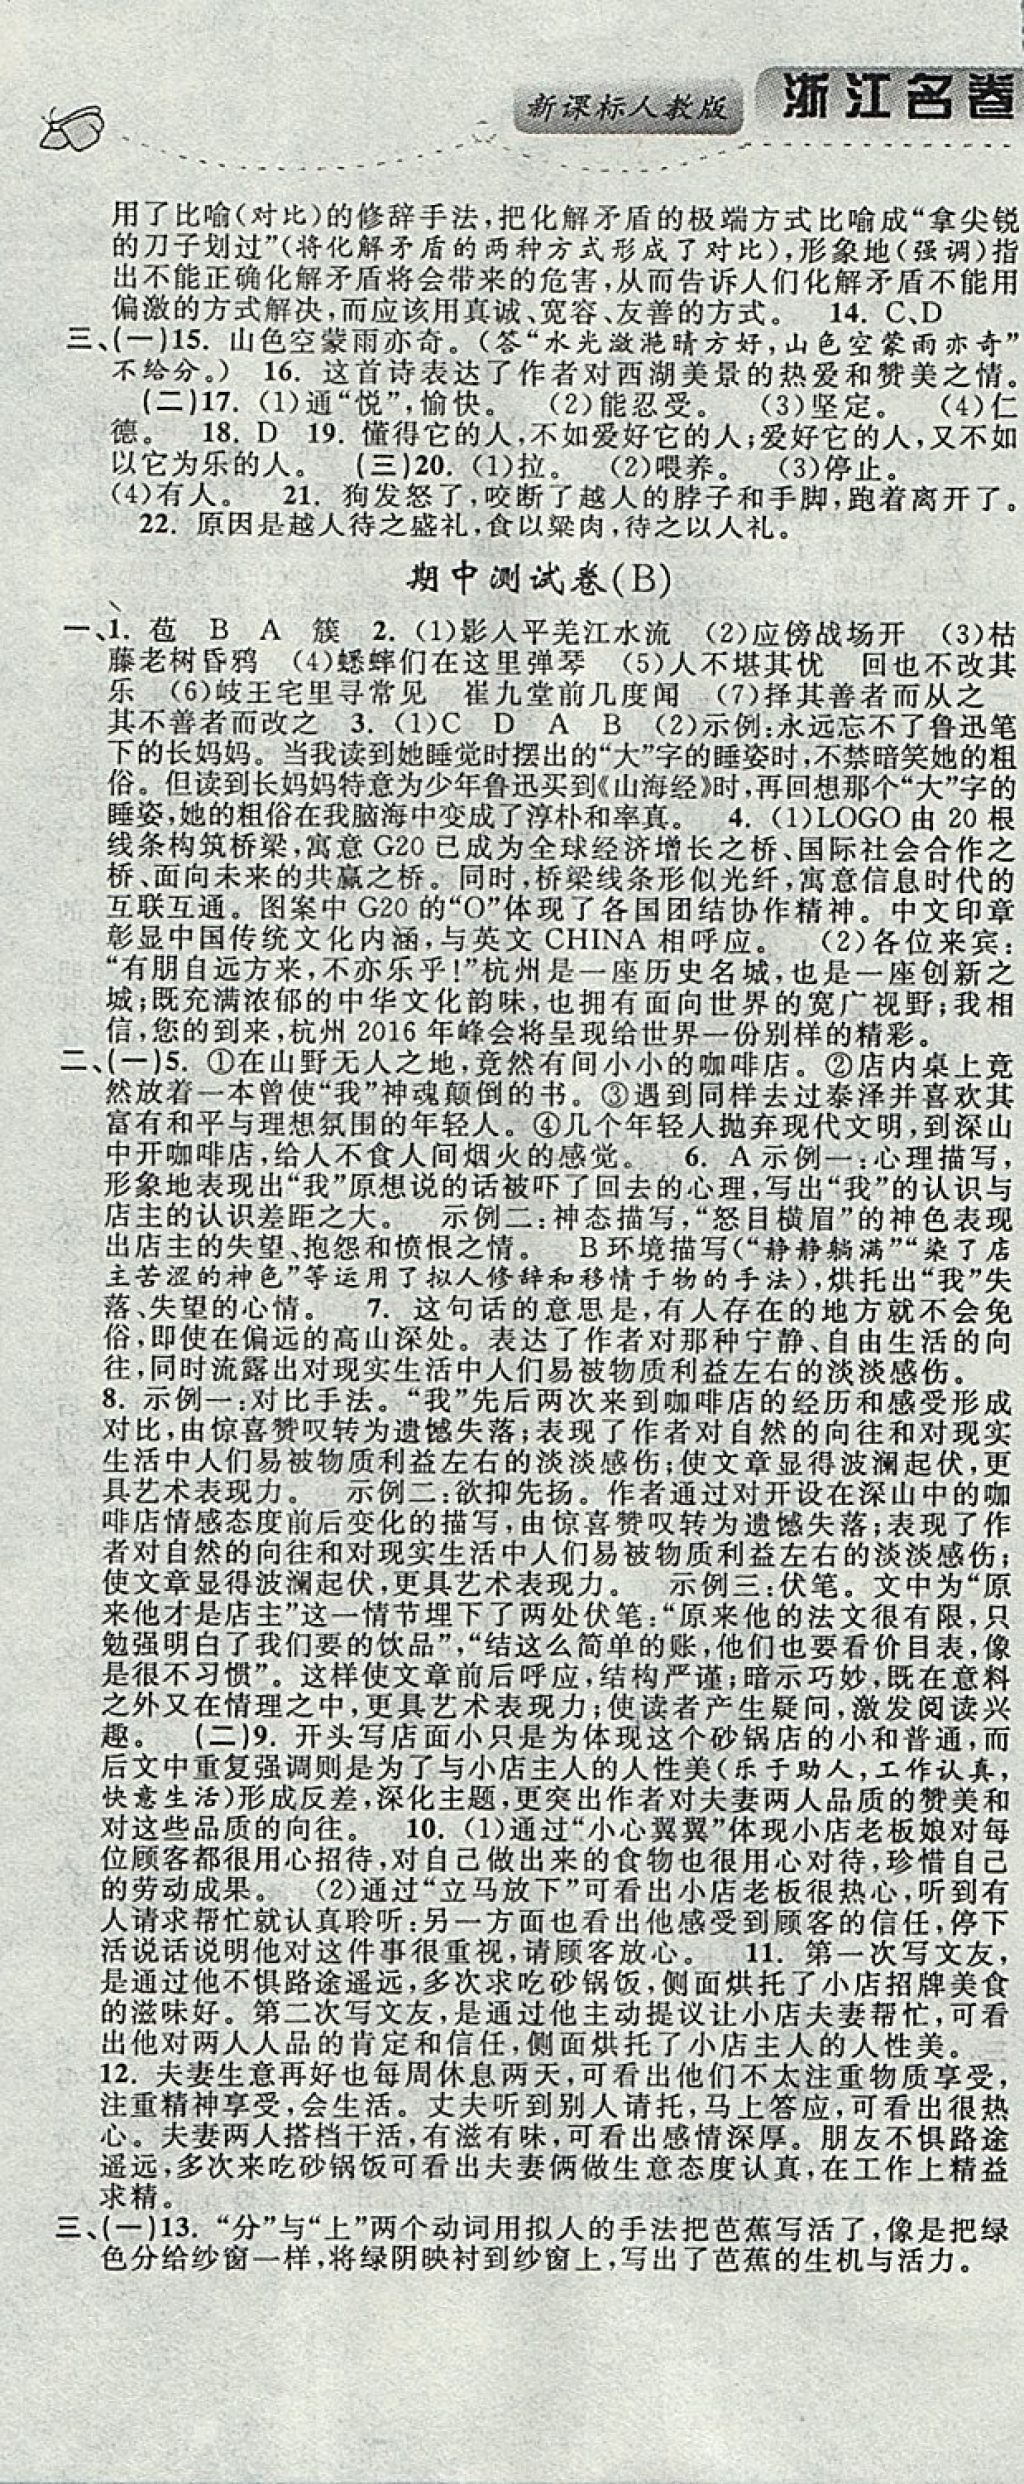 新课标人教版 浙江名卷
用了比喻(对比)的修辞手法,把化解矛盾的极端方式比喻成“拿尖锐
的刀子划过”(将化解矛盾的两种方式形成了对比),形象地(强调)指
出不能正确化解矛盾将会带来的危害,从而告诉人们化解矛盾不能用
偏激的方式解决,而应该用真诚、宽容、友善的方式。 14. C、D
三、(一)15. 山色空蒙雨亦奇。(答“水光潋滟晴方好,山色空蒙雨亦奇”
不给分。) 16. 这首诗表达了作者对西湖美景的热爱和赞美之情。
(二)17. (1)通“悦”,愉快。 (2)能忍受。 (3)坚定。 (4)仁
德。 18. D 19. 懂得它的人,不如爱好它的人;爱好它的人,又不如
以它为乐的人。 (三)20. (1)拉。 (2)喂养。 (3)停止。
(4)有人。 21. 狗发怒了,咬断了越人的脖子和手脚,跑着离开了。
22. 原因是越人待之盛礼,食以粱肉,待之以人礼。
期中测试卷(B)
一、1. 苞 B A 簇 2. (1)影人平羌江水流 (2)应傍战场开 (3)枯
藤老树昏鸦 (4)蟋蟀们在这里弹琴 (5)人不堪其忧 回也不改其
乐 (6)岐王宅里寻常见 崔九堂前几度闻 (7)择其善者而从之
其不善者而改之 3. (1)C D A B (2)示例:永远忘不了鲁迅笔
下的长妈妈。当我读到她睡觉时摆出的“大”字的睡姿时,不禁暗笑她的粗
俗。但读到长妈妈特意为少年鲁迅买到《山海经》时,再回想那个“大”字的
睡姿,她的粗俗在我脑海中变成了淳朴和率真。 4. (1)LOGO由20根
线条构筑桥梁,寓意G20已成为全球经济增长之桥、国际社会合作之
桥、面向未来的共赢之桥。同时,桥梁线条形似光纤,寓意信息时代的
互联互通。图案中G20的“O”体现了各国团结协作精神。中文印章
彰显中国传统文化内涵,与英文CHINA相呼应。 (2)各位来宾:
“有朋自远方来,不亦乐乎!”杭州是一座历史名城,也是一座创新之
城;既充满浓郁的中华文化韵味,也拥有面向世界的宽广视野;我相
信,您的到来,杭州2016年峰会将呈现给世界一份别样的精彩。
二、(一)5. ①在山野无人之地,竟然有间小小的咖啡店。②店内桌上竟
然放着一本曾使“我”神魂颠倒的书。③遇到同样去过泰泽并喜欢其
富有和平与理想氛围的年轻人。④几个年轻人抛弃现代文明,到深山
中开咖啡店,给人不食人间烟火的感觉。 6. A示例一:心理描写,
形象地表现出“我”原想说的话被吓了回去的心理,写出“我”的认识与
店主的认识差距之大。 示例二:神态描写,“怒目横眉”的神色表现
出店主的失望、抱怨和愤恨之情。 B环境描写(“静静躺满”“染了店
主苦涩的神色”等运用了拟人修辞和移情于物的手法),烘托出“我”失
落、失望的心情。 7. 这句话的意思是,有人存在的地方就不会免
俗,即使在偏远的高山深处。表达了作者对那种宁静、自由生活的向
往,同时流露出对现实生活中人们易被物质利益左右的淡淡感伤。
8. 示例一:对比手法。“我”先后两次来到咖啡店的经历和感受形成
对比,由惊喜赞叹转为遗憾失落;表现了作者对自然的向往和对现实
生活中人们易被物质利益左右的淡淡感伤;使文章显得波澜起伏,更
具艺术表现力。 示例二:欲抑先扬。作者通过对开设在深山中的咖
啡店情感态度前后变化的描写,由惊喜赞叹转为遗憾失落;表现了作
者对自然的向往和对现实生活中人们易被物质利益左右的淡淡感伤;
使文章显得波澜起伏,更具艺术表现力。 示例三:伏笔。文中为“原
来他才是店主”这一情节埋下了两处伏笔:“原来他的法文很有限,只
勉强明白了我们要的饮品”,“结这么简单的账,他们也要看价目表,像
是很不习惯”。这样使文章前后呼应,结构严谨;暗示巧妙,既在意料
之外又在情理之中,更具艺术表现力;使读者产生疑问,激发阅读兴
趣。 (二)9. 开头写店面小只是为体现这个砂锅店的小和普通,而
后文中重复强调则是为了与小店主人的人性美(乐于助人,工作认真,
快意生活)形成反差,深化主题,更突出作者对夫妻两人品质的赞美和
对这些品质的向往。 10. (1)通过“小心翼翼”体现小店老板娘对每
位顾客都很用心招待,对自己做出来的食物也很用心对待,珍惜自己
的劳动成果。 (2)通过“立马放下”可看出小店老板很热心,听到有
人请求帮忙就认真聆听;另一方面也看出他感受到顾客的信任,停下
活说话说明他对这件事很重视,请顾客放心。 11. 第一次写文友,
是通过他不惧路途遥远,多次求吃砂锅饭,侧面烘托了小店招牌美食
的滋味好。第二次写文友,是通过他主动提议让小店夫妻帮忙,可看
出他对两人人品的肯定和信任,侧面烘托了小店主人的人性美。
12. 夫妻生意再好也每周休息两天,可看出他们不太注重物质享受,
注重精神享受,会生活。丈夫听到别人请托,马上答应,可看出很热
心。夫妻两人搭档干活,有滋有味,可看出感情深厚。朋友不惧路途
遥远,多次来吃砂锅饭可看出夫妻俩做生意态度认真,在工作上精益
求精。
三、(一)13. “分”与“上”两个动词用拟人的手法把芭蕉写活了,像是把绿
色分给纱窗一样,将绿阴映衬到纱窗上,写出了芭蕉的生机与活力。